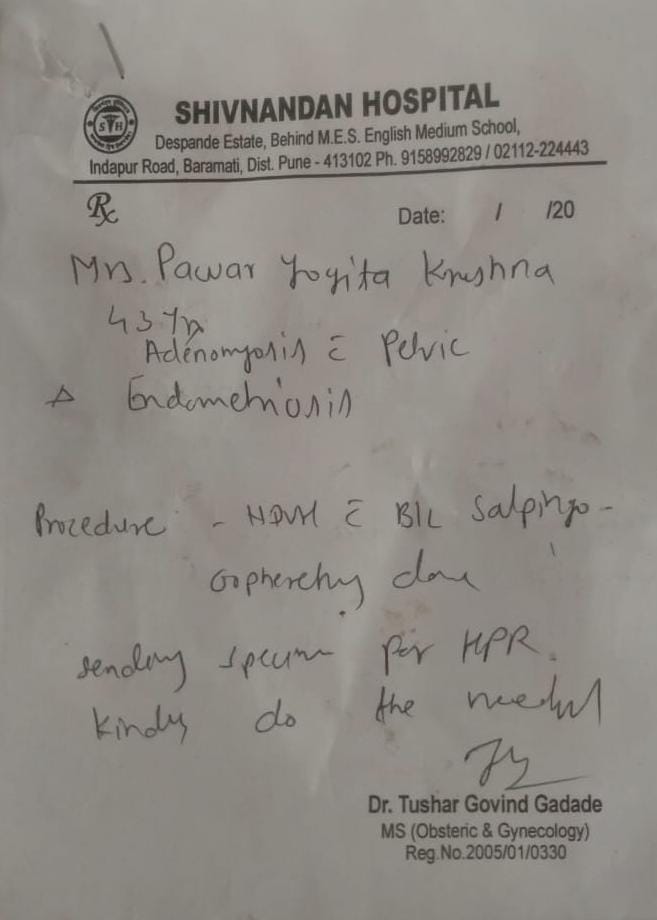 SHIVNANDAN HOSPITAL
S H
Despande Estate, Behind M.E.S. English Medium School,
Indapur Road, Baramati, Dist. Pune - 413102 Ph. 9158992829 / 02112-224443
Rx
Date: / /20
Mrs. Pawar Yogita Krushna
43 Yrs
Adenomyosis c̄ Pelvic
Δ Endometriosis
Procedure - NDVH c̄ B/L Salpingo-
oopherectomy done
sending specimen for HPR.
Kindly do the needful
Dr. Tushar Govind Gadade
MS (Obsteric & Gynecology)
Reg.No.2005/01/0330